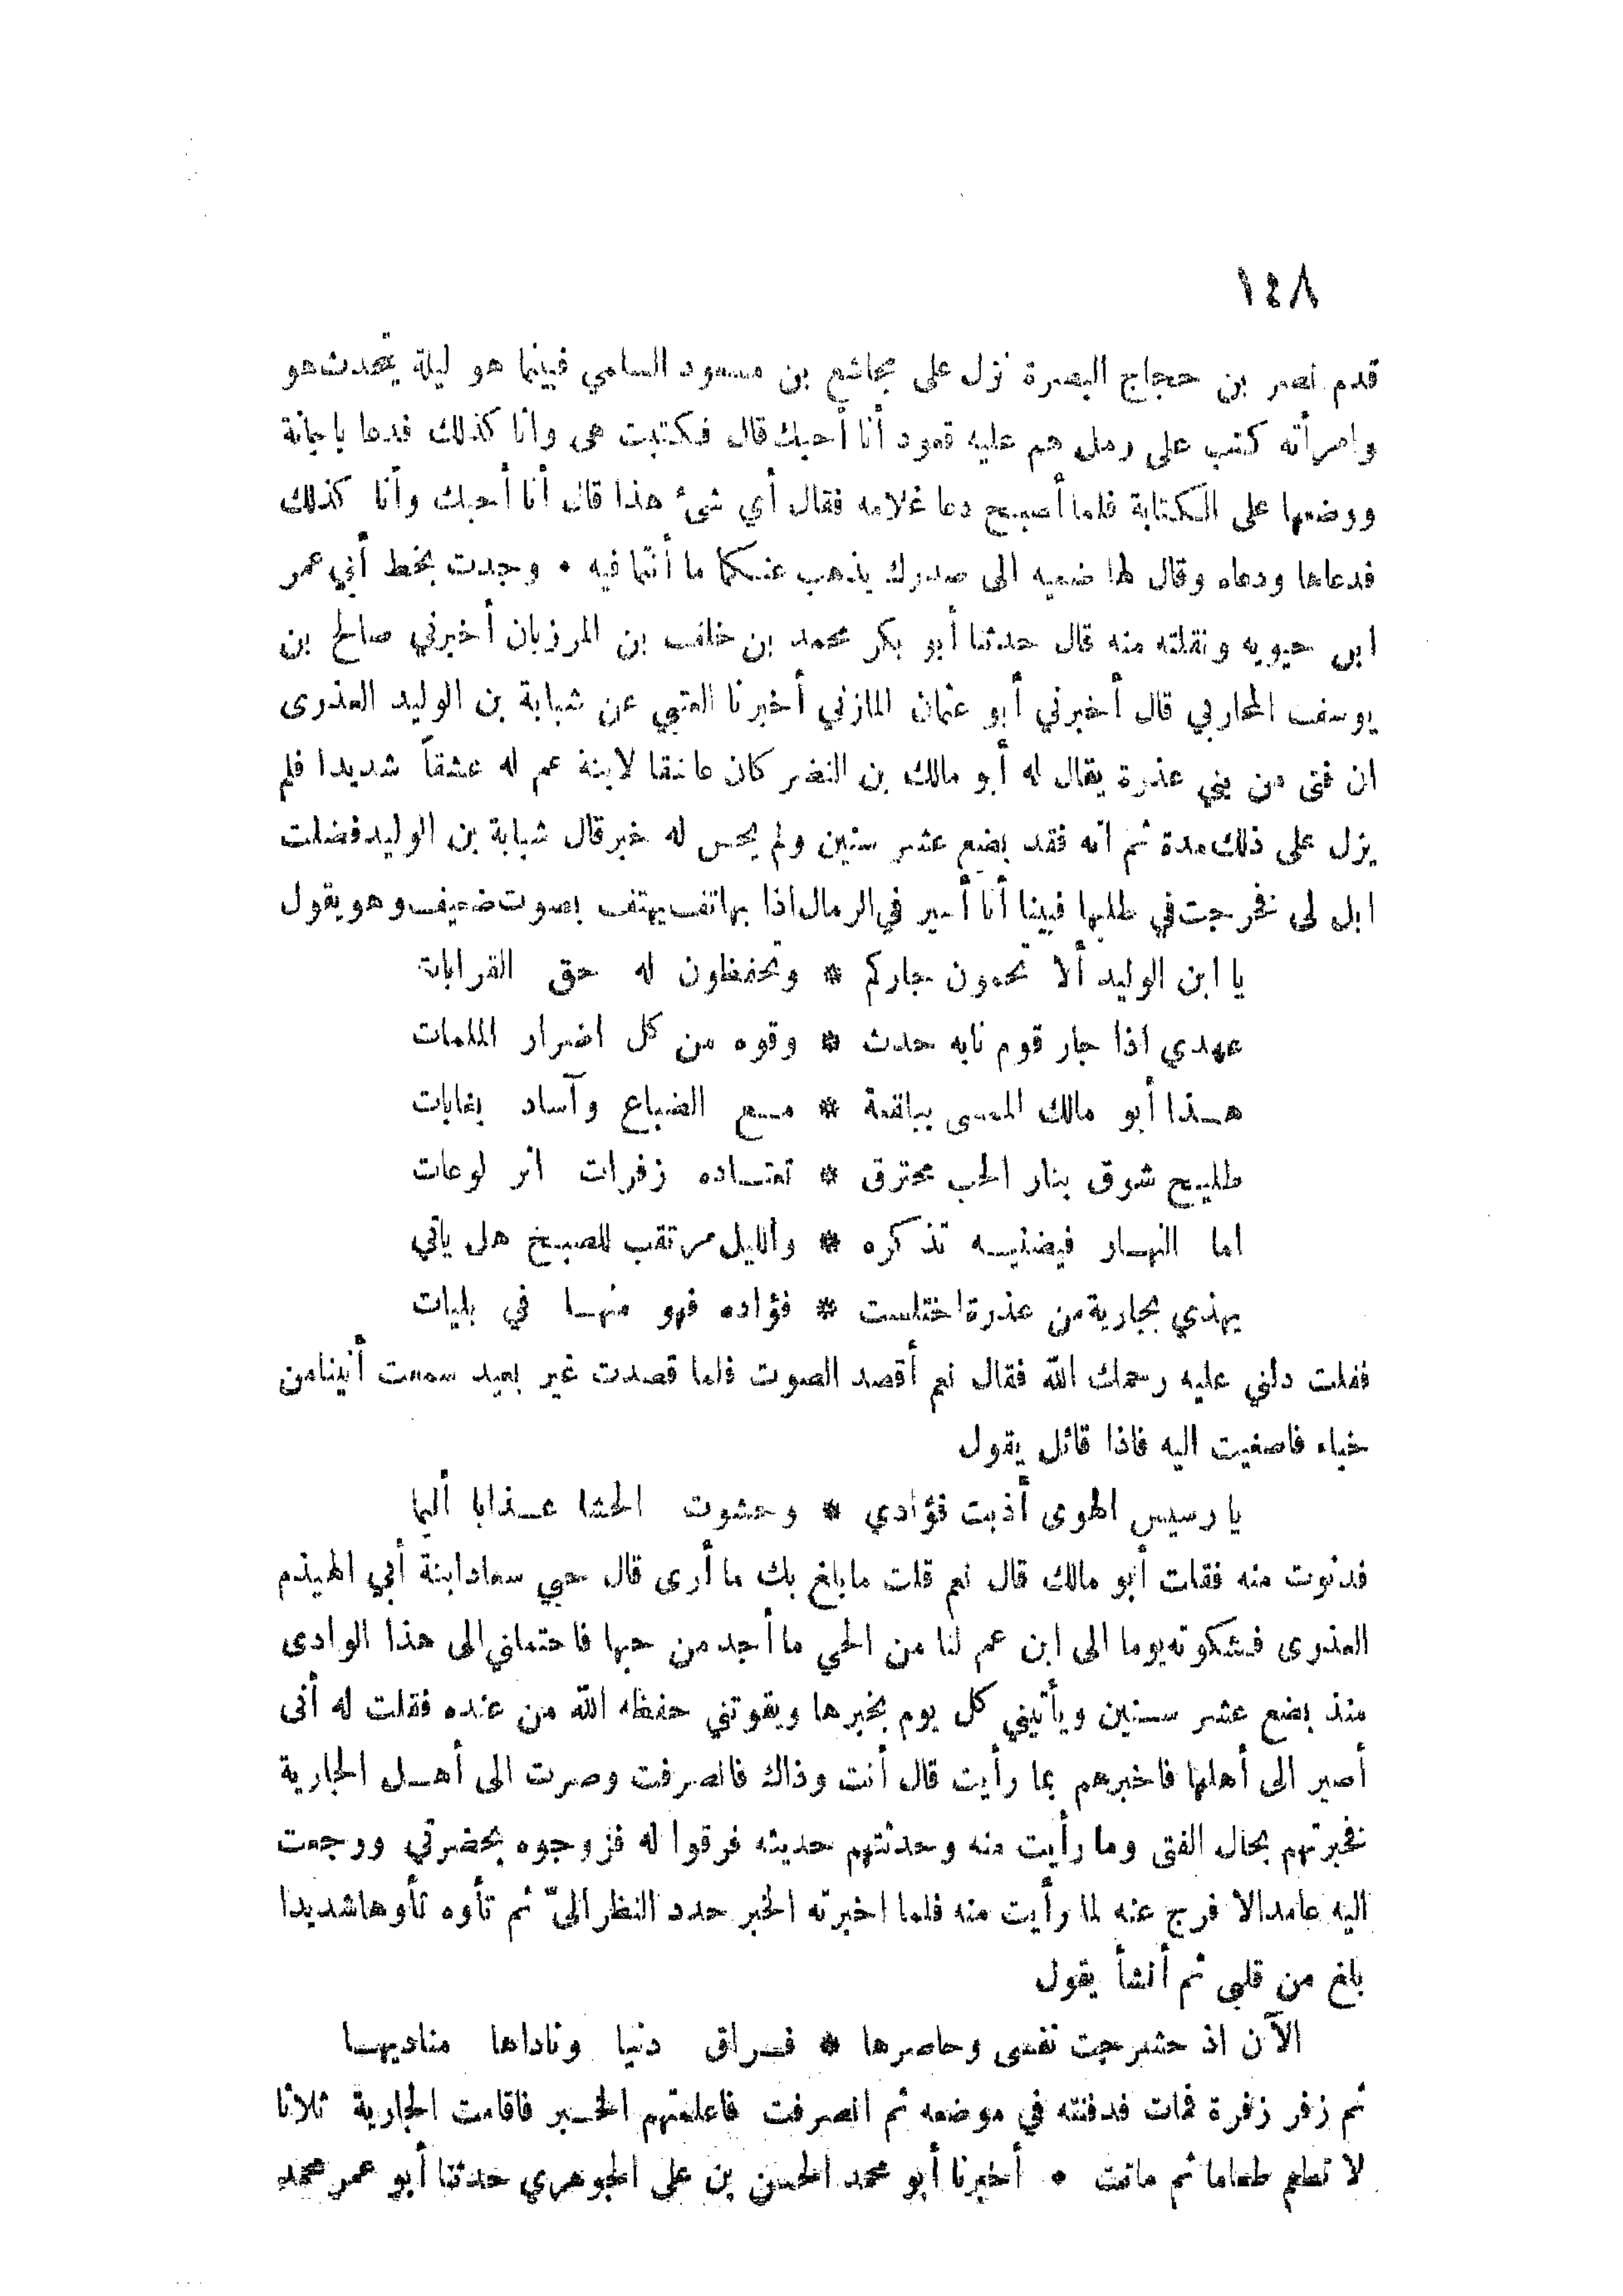 ١٤٨
قدم نصر بن حجاج البصرة نزل على مجاشع بن مسعود السلمي فبينما هو ليلة يتحدث هو
وامرأته كتب على رمل هم عليه قعود أنا أحبك قال فكتبت هي وأنا كذلك فدعا باجانة
ووضعها على الكتابة فلما أصبح دعا غلامه فقال أي شئ هذا قال أنا أحبك وأنا كذلك
فدعاها ودعاه وقال لها ضميه الى صدرك يذهب عنكما ما أنتما فيه • وجدت بخط أبي عمر
ابن حيويه ونقلته منه قال حدثنا أبو بكر محمد بن خلف بن المرزبان أخبرني صالح بن
يوسف المحاربي قال أخبرني أبو عثمان المازني أخبرنا العتبي عن شبابة بن الوليد العذرى
ان فتى من بني عذرة يقال له أبو مالك بن النضر كان عاشقا لابنة عم له عشقاً شديدا فلم
يزل على ذلك مدة ثم انه فقد بضع عشر سنين ولم يحس له خبر قال شبابة بن الوليد فضلت
ابل لى فخرجت في طلبها فبينا أنا أسير في الرمال اذا بهاتف يهتف بصوت ضعيف وهو يقول
يا ابن الوليد ألا تحمون جاركم * وتحفظون له حق القرابات
عهدي اذا جار قوم نابه حدث * وقوه من كل اضرار الملمات
هـذا أبو مالك الممسى ببلقعة * مـع الضباع وآساد بغابات
طليح شوق بنار الحب محترق * تعتـاده زفرات اثر لوعات
اما النهـار فيضنيـه تذكره * والليل مرتقب للصبح هل يأتي
يهذي بجارية من عذرة اختلست * فؤاده فهو منهـا في بليات
فقلت دلني عليه رحمك الله فقال نعم أقصد الصوت فلما قصدت غير بعيد سمعت أنينا من
خباء فاصغيت اليه فاذا قائل يقول
يا رسيس الهوى أذبت فؤادي * وحشوت الحشا عـذابا أليما
فدنوت منه فقلت أبو مالك قال نعم قلت ما بلغ بك ما أرى قال حبي سعاد ابنة أبي الهيذم
العذرى فشكوته يوما الى ابن عم لنا من الحي ما أجد من حبها فاحتملني الى هذا الوادى
منذ بضع عشر سـنين ويأتيني كل يوم بخبرها ويقوتني حفظه الله من عنده فقلت له أنى
أصير الى أهلها فاخبرهم بما رأيت قال أنت وذاك فانصرفت وصرت الى أهـل الجارية
فخبرتهم بحال الفتى وما رأيت منه وحدثتهم حديثه فرقوا له فزوجوه بحضرتي ورجعت
اليه عامدا لا فرج عنه لما رأيت منه فلما اخبرته الخبر حدد النظر الىّ ثم تأوه تأوها شديدا
بلغ من قلبي ثم أنشأ يقول
الآن اذ حشرجت نفسى وحاصرها * فـراق دنيا وناداها مناديهـا
ثم زفر زفرة فمات فدفنته في موضعه ثم انصرفت فاعلمتهم الخـبر فاقامت الجارية ثلاثا
لا تطعم طعاما ثم ماتت • أخبرنا أبو محمد الحسن بن على الجوهري حدثنا أبو عمر محمد